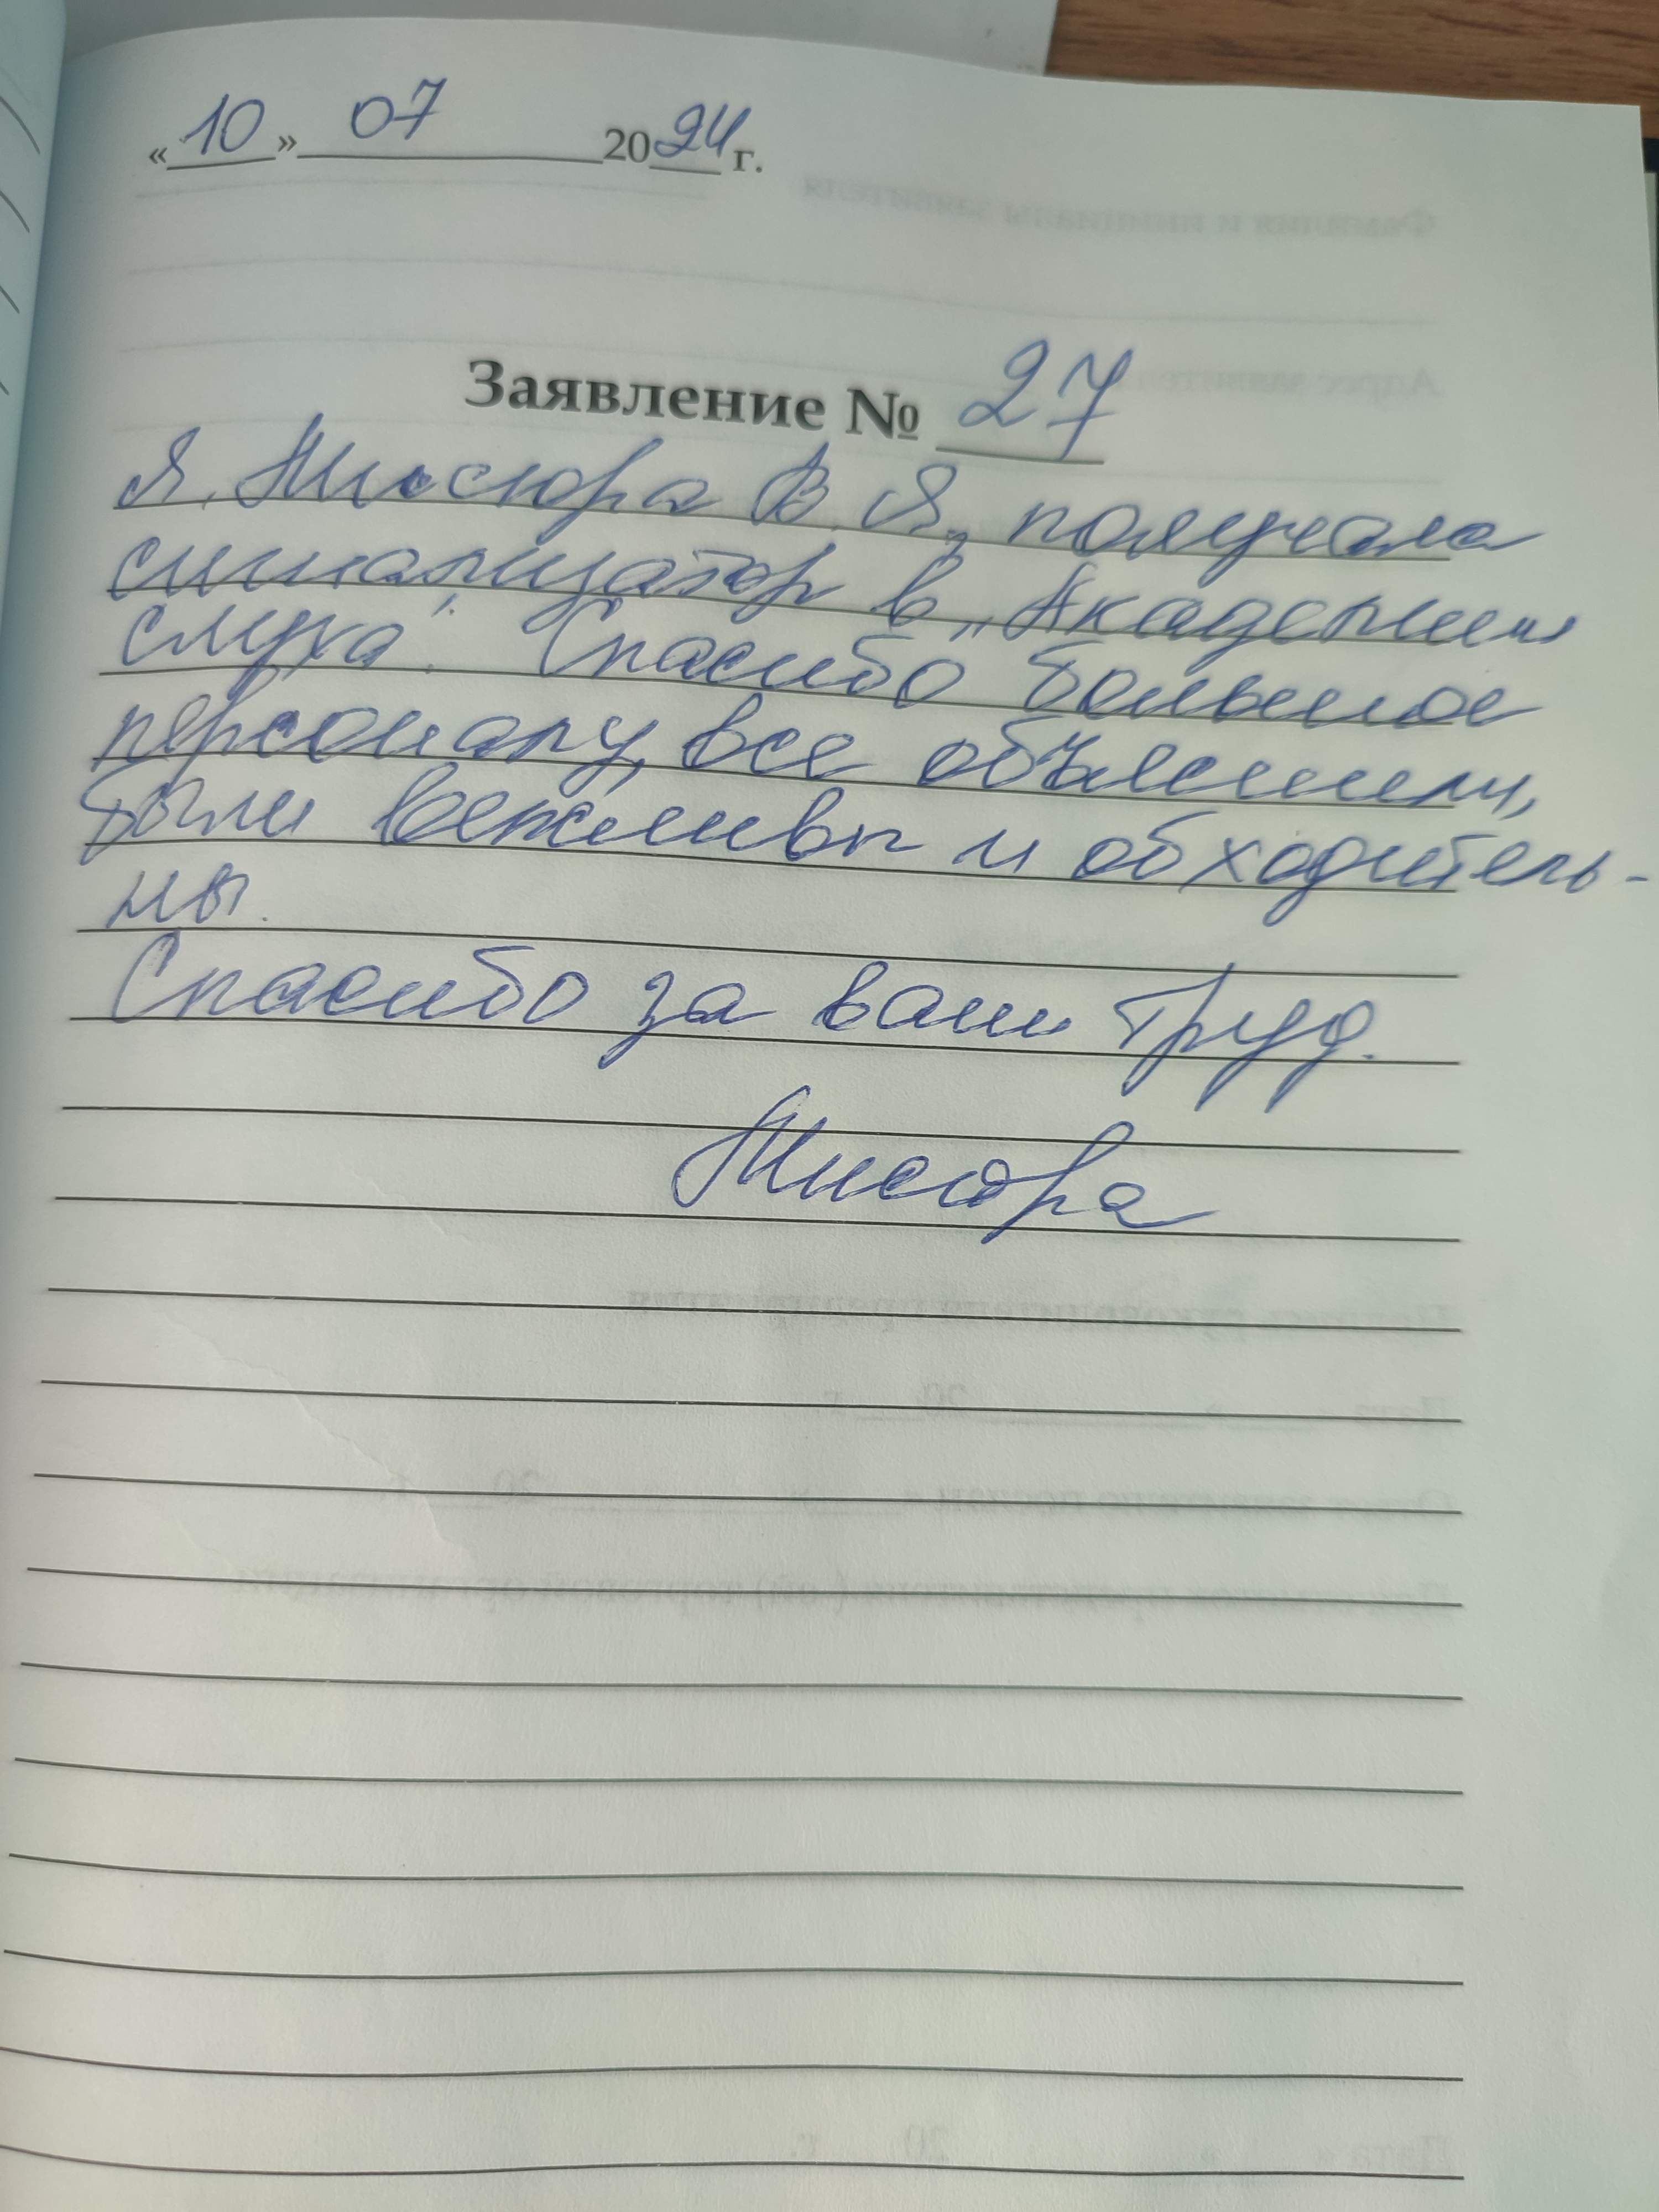 «10» 07 2024 г.
Заявление № 27
Я, Мисюра В. Я, получала
сигнализатор в „Академии
слуха". Спасибо большое
персоналу, все объяснили,
были вежливы и обходитель-
ны.
Спасибо за ваш труд.
Мисюра